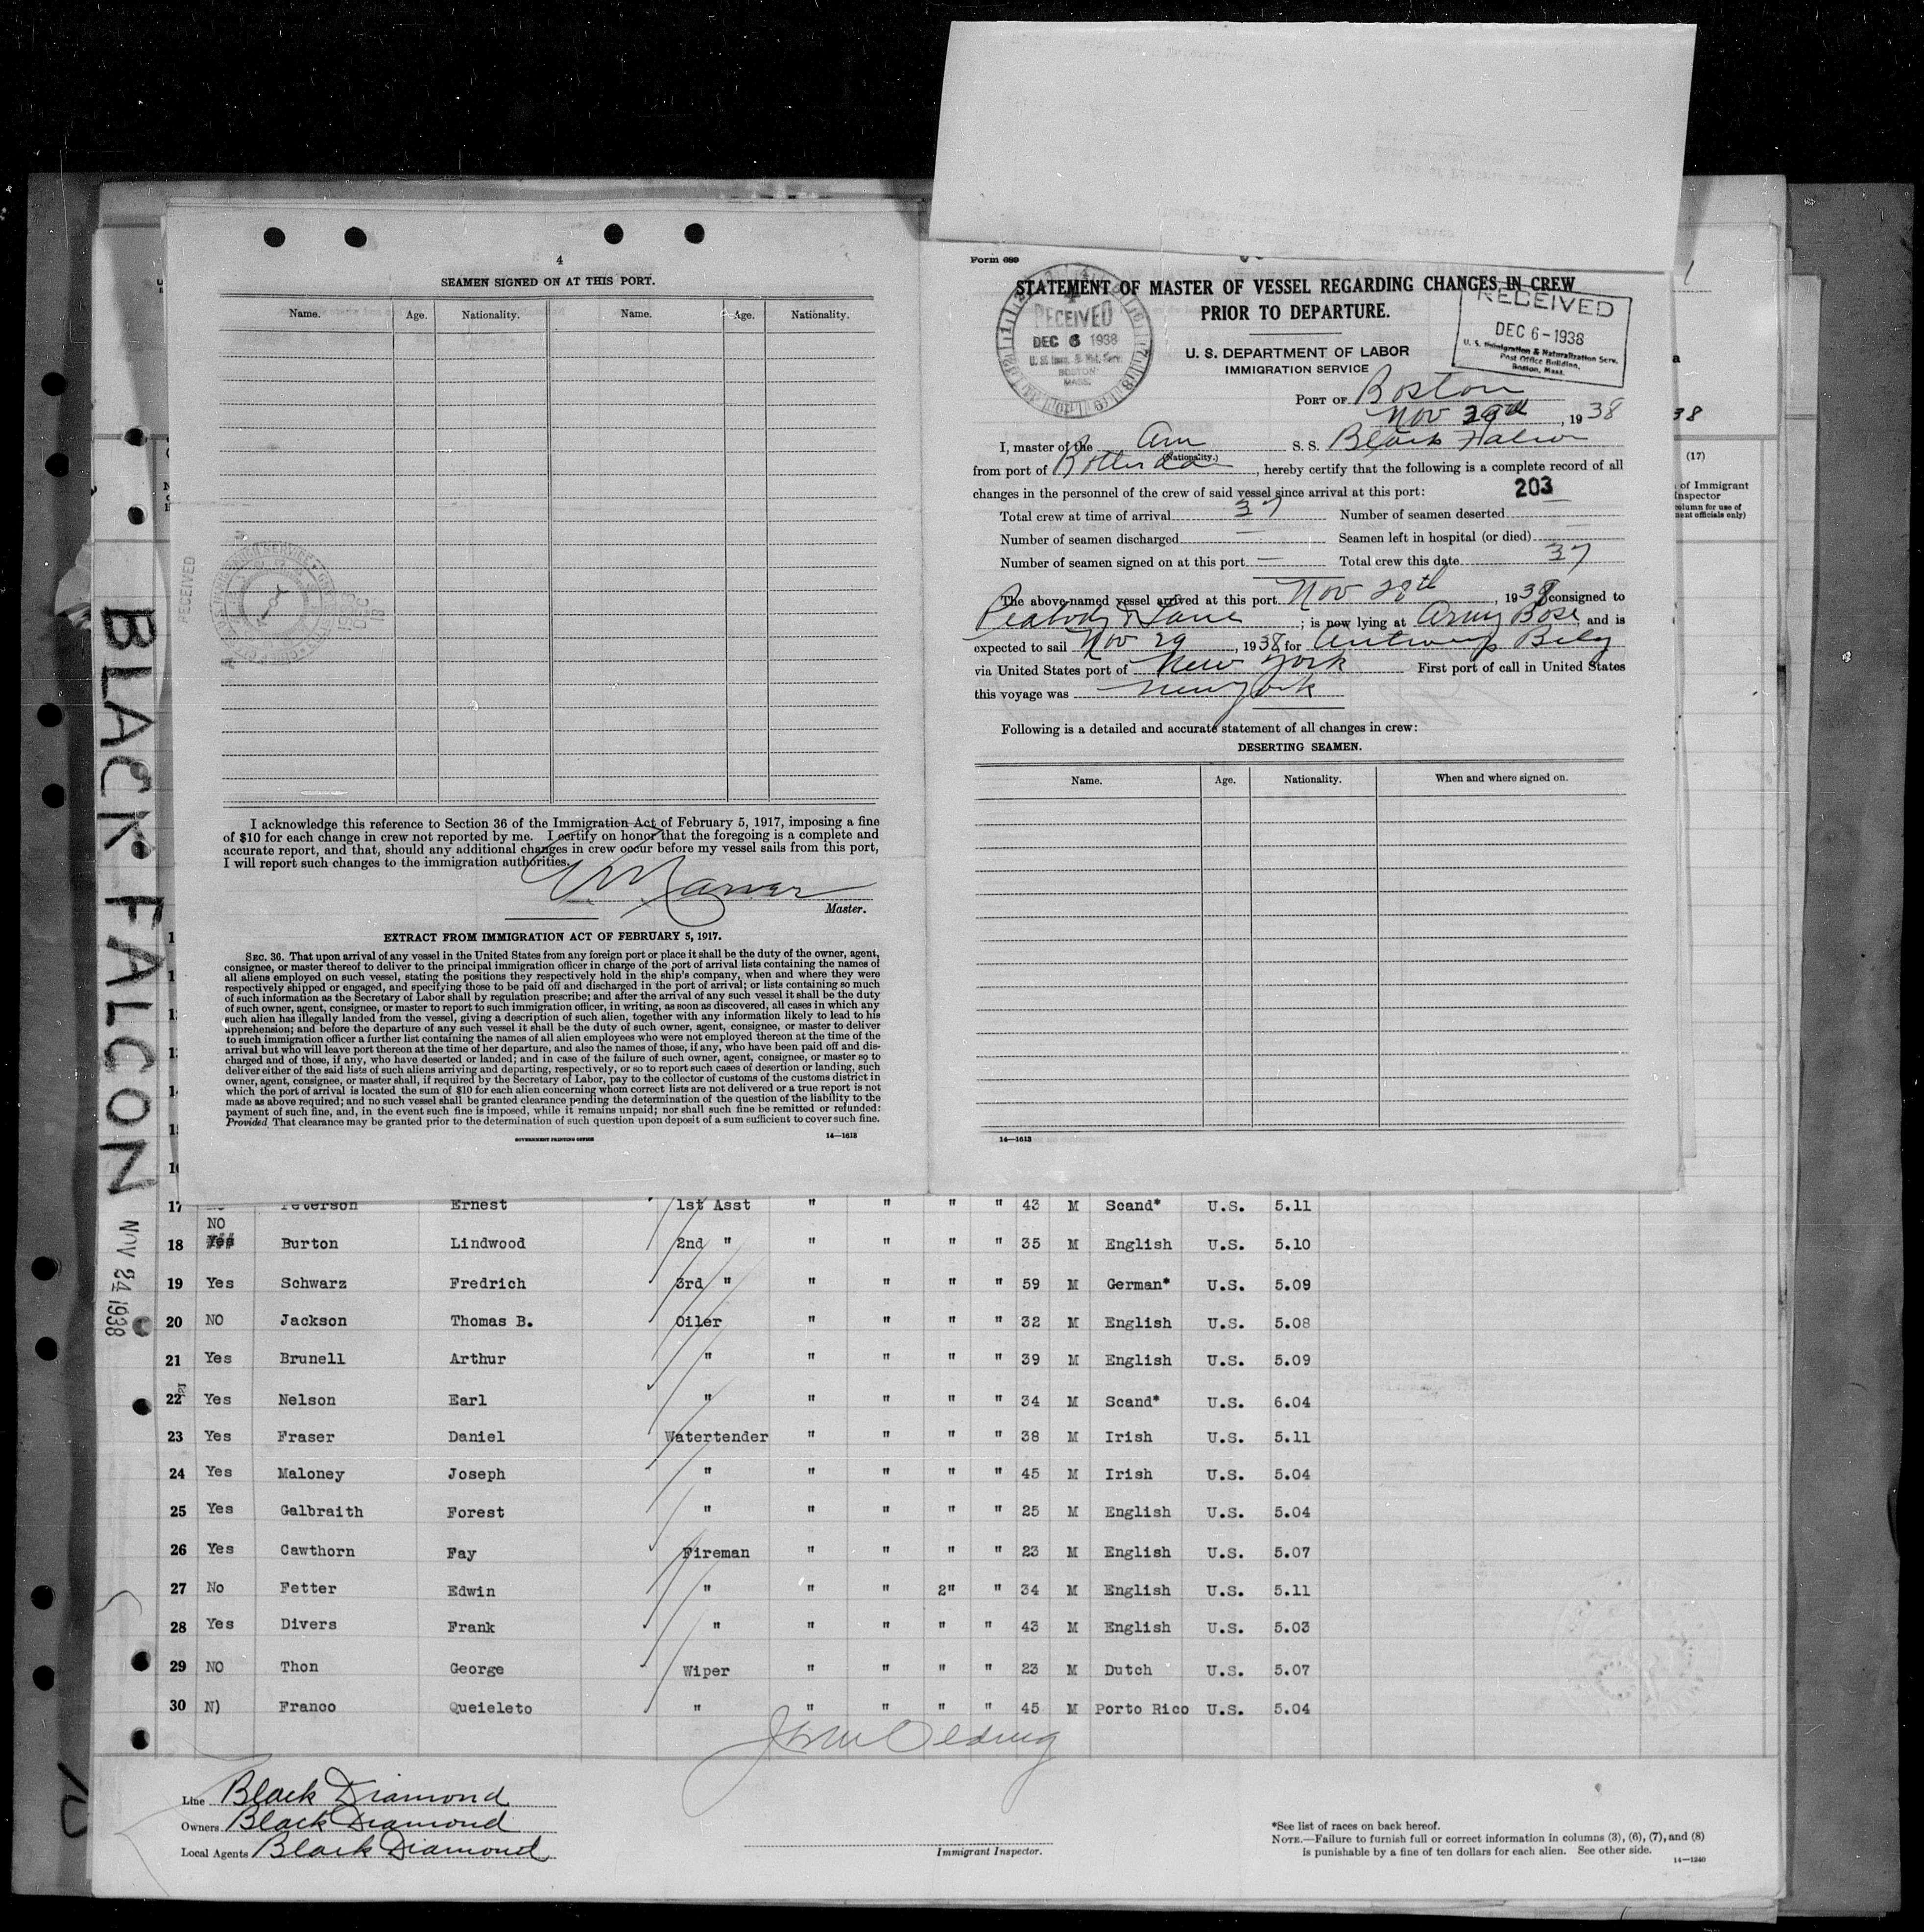 4
SEAMEN SIGNED ON AT THIS PORT.
Name. Age. Nationality. Name. Age. Nationality.
RECEIVED
I acknowledge this reference to Section 36 of the Immigration Act of February 5, 1917, imposing a fine
of $10 for each change in crew not reported by me. I certify on honor that the foregoing is a complete and
accurate report, and that, should any additional changes in crew occur before my vessel sails from this port,
I will report such changes to the immigration authorities.
Master.
EXTRACT FROM IMMIGRATION ACT OF FEBRUARY 5, 1917.
SEC. 36. That upon arrival of any vessel in the United States from any foreign port or place it shall be the duty of the owner, agent,
consignee, or master thereof to deliver to the principal immigration officer in charge of the port of arrival lists containing the names of
all aliens employed on such vessel, stating the positions they respectively hold in the ship's company, when and where they were
respectively shipped or engaged, and specifying those to be paid off and discharged in the port of arrival; or lists containing so much
of such information as the Secretary of Labor shall by regulation prescribe; and after the arrival of any such vessel it shall be the duty
of such owner, agent, consignee, or master to report to such immigration officer, in writing, as soon as discovered, all cases in which any
such alien has illegally landed from the vessel, giving a description of such alien, together with any information likely to lead to his
apprehension; and before the departure of any such vessel it shall be the duty of such owner, agent, consignee, or master to deliver
to such immigration officer a further list containing the names of all alien employees who were not employed thereon at the time of the
arrival but who will leave port thereon at the time of her departure, and also the names of those, if any, who have been paid off and dis-
charged and of those, if any, who have deserted or landed; and in case of the failure of such owner, agent, consignee, or master so to
deliver either of the said lists of such aliens arriving and departing, respectively, or so to report such cases of desertion or landing, such
owner, agent, consignee, or master shall, if required by the Secretary of Labor, pay to the collector of customs of the customs district in
which the port of arrival is located the sum of $10 for each alien concerning whom correct lists are not delivered or a true report is not
made as above required; and no such vessel shall be granted clearance pending the determination of the question of the liability to the
payment of such fine, and, in the event such fine is imposed, while it remains unpaid; nor shall such fine be remitted or refunded:
Provided, That clearance may be granted prior to the determination of such question upon deposit of a sum sufficient to cover such fine.
GOVERNMENT PRINTING OFFICE 14—1613
Form 689
STATEMENT OF MASTER OF VESSEL REGARDING CHANGES IN CREW
PRIOR TO DEPARTURE.
RECEIVED
DEC 6 1938
U. S. Imm. & Nat. Serv.
BOSTON
MASS.
RECEIVED
DEC 6-1938
U. S. Immigration & Naturalization Serv.
Post Office Building,
Boston, Mass.
U. S. DEPARTMENT OF LABOR
IMMIGRATION SERVICE
PORT OF Boston
Nov 29th, 1938
I, master of the Am S. S. Black Falcon
(Nationality.)
from port of Rotterdam, hereby certify that the following is a complete record of all
changes in the personnel of the crew of said vessel since arrival at this port: 203
Total crew at time of arrival 37 Number of seamen deserted
Number of seamen discharged — Seamen left in hospital (or died)
Number of seamen signed on at this port — Total crew this date 37
The above-named vessel arrived at this port Nov 28th, 1938 consigned to
Peabody & Lane; is now lying at Army Base, and is
expected to sail Nov 29, 1938, for Antwerp Belg
via United States port of New York First port of call in United States
this voyage was New York
Following is a detailed and accurate statement of all changes in crew:
DESERTING SEAMEN.
Name. Age. Nationality. When and where signed on.
14—1613
38
(17)
of Immigrant
Inspector
column for use of
officials only)
BLACK FALCON NOV 24 1938
17 Peterson Ernest 1st Asst " " " " 43 M Scand* U.S. 5.11
NO
18 Yes Burton Lindwood 2nd " " " " " 35 M English U.S. 5.10
19 Yes Schwarz Fredrich 3rd " " " " " 59 M German* U.S. 5.09
20 NO Jackson Thomas B. Oiler " " " " 32 M English U.S. 5.08
21 Yes Brunell Arthur " " " " " 39 M English U.S. 5.09
22 Yes Nelson Earl " " " " " 34 M Scand* U.S. 6.04
23 Yes Fraser Daniel Watertender " " " " 38 M Irish U.S. 5.11
24 Yes Maloney Joseph " " " " " 45 M Irish U.S. 5.04
25 Yes Galbraith Forest " " " " " 25 M English U.S. 5.04
26 Yes Cawthorn Fay Fireman " " " " 23 M English U.S. 5.07
27 No Fetter Edwin " " " 2" " 34 M English U.S. 5.11
28 Yes Divers Frank " " " " " 43 M English U.S. 5.03
29 NO Thon George Wiper " " " " 23 M Dutch U.S. 5.07
30 N) Franco Queieleto " " " " " 45 M Porto Rico U.S. 5.04
Line Black Diamond
Owners Black Diamond
Local Agents Black Diamond
Immigrant Inspector.
*See list of races on back hereof.
NOTE.—Failure to furnish full or correct information in columns (3), (6), (7), and (8)
is punishable by a fine of ten dollars for each alien. See other side.
14—1240